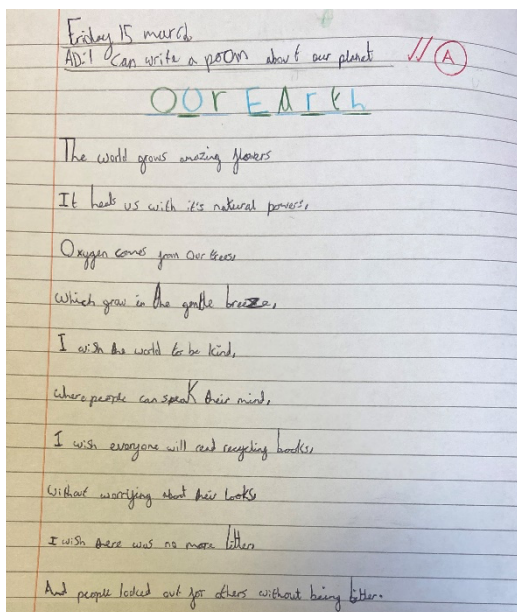 Friday 15 march
AD: I can write a poom about our planet // A
OUr EArth
The world grows amazing flowers
It heals us with it's natural powers,
Oxygen comes from Our trees,
which grow in the gentle breeze,
I wish the world to be kind,
where people can speak their mind,
I wish everyone will read recycling books,
without worrying about their looks,
I wish there was no more litter,
And people looked out for others without being bitter.